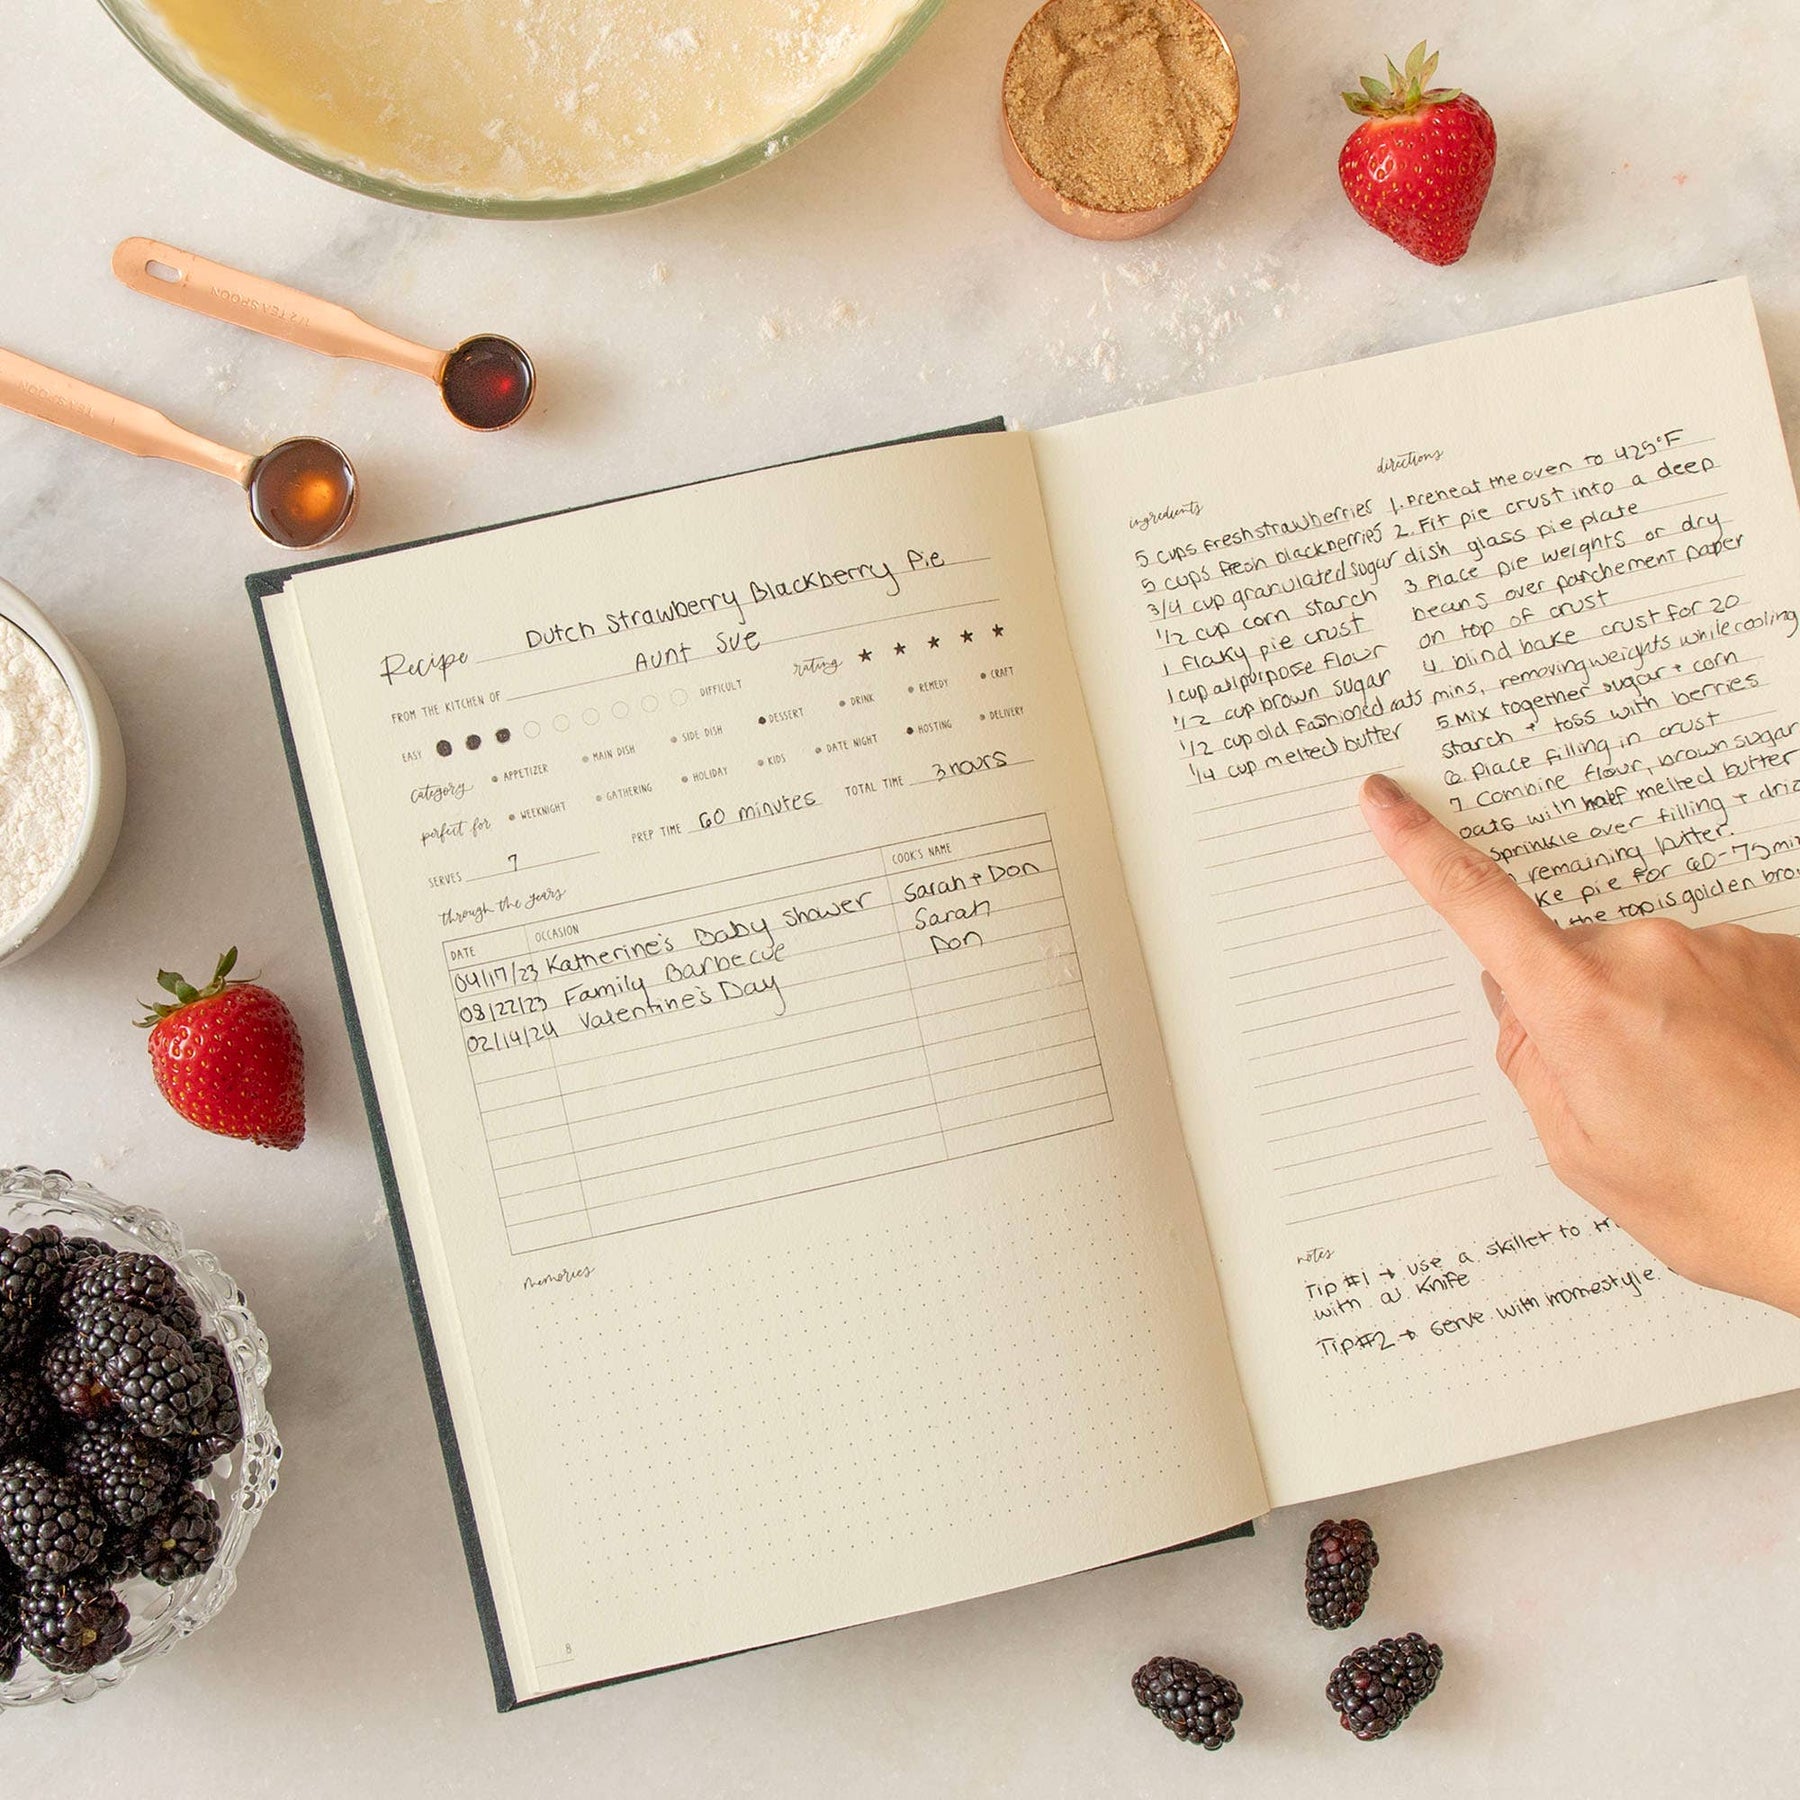 1/2 TEASPOON
1 TEASPOON
Recipe Dutch Strawberry Blackberry Pie
FROM THE KITCHEN OF Aunt Sue
rating ★ ★ ★ ★ ★
EASY DIFFICULT
category APPETIZER MAIN DISH SIDE DISH DESSERT DRINK REMEDY CRAFT
perfect for WEEKNIGHT GATHERING HOLIDAY KIDS DATE NIGHT HOSTING DELIVERY
SERVES 7 PREP TIME 60 minutes TOTAL TIME 3 hours
through the years
DATE OCCASION COOK'S NAME
04/17/23 Katherine's Baby Shower Sarah + Don
08/22/23 Family Barbecue Sarah
02/14/24 Valentine's Day Don
memories
8
ingredients
5 cups fresh strawberries
5 cups fresh blackberries
3/4 cup granulated sugar
1/2 cup corn starch
1 flaky pie crust
1 cup allpurpose flour
1/2 cup brown sugar
1/2 cup old fashioned oats
1/4 cup melted butter
directions
1. Preheat the oven to 425°F
2. Fit pie crust into a deep
dish glass pie plate
3 Place pie weights or dry
beans over parchement paper
on top of crust
4 blind bake crust for 20
mins, removing weights while cooling
5 Mix together sugar + corn
starch + toss with berries
6. Place filling in crust
7 Combine flour, brown sugar
oats with half melted butter
sprinkle over filling +
remaining butter.
pie for 60-75
the top is golden
notes
Tip #1 → use a skillet to
with a knife
Tip #2 → Serve with homestyle